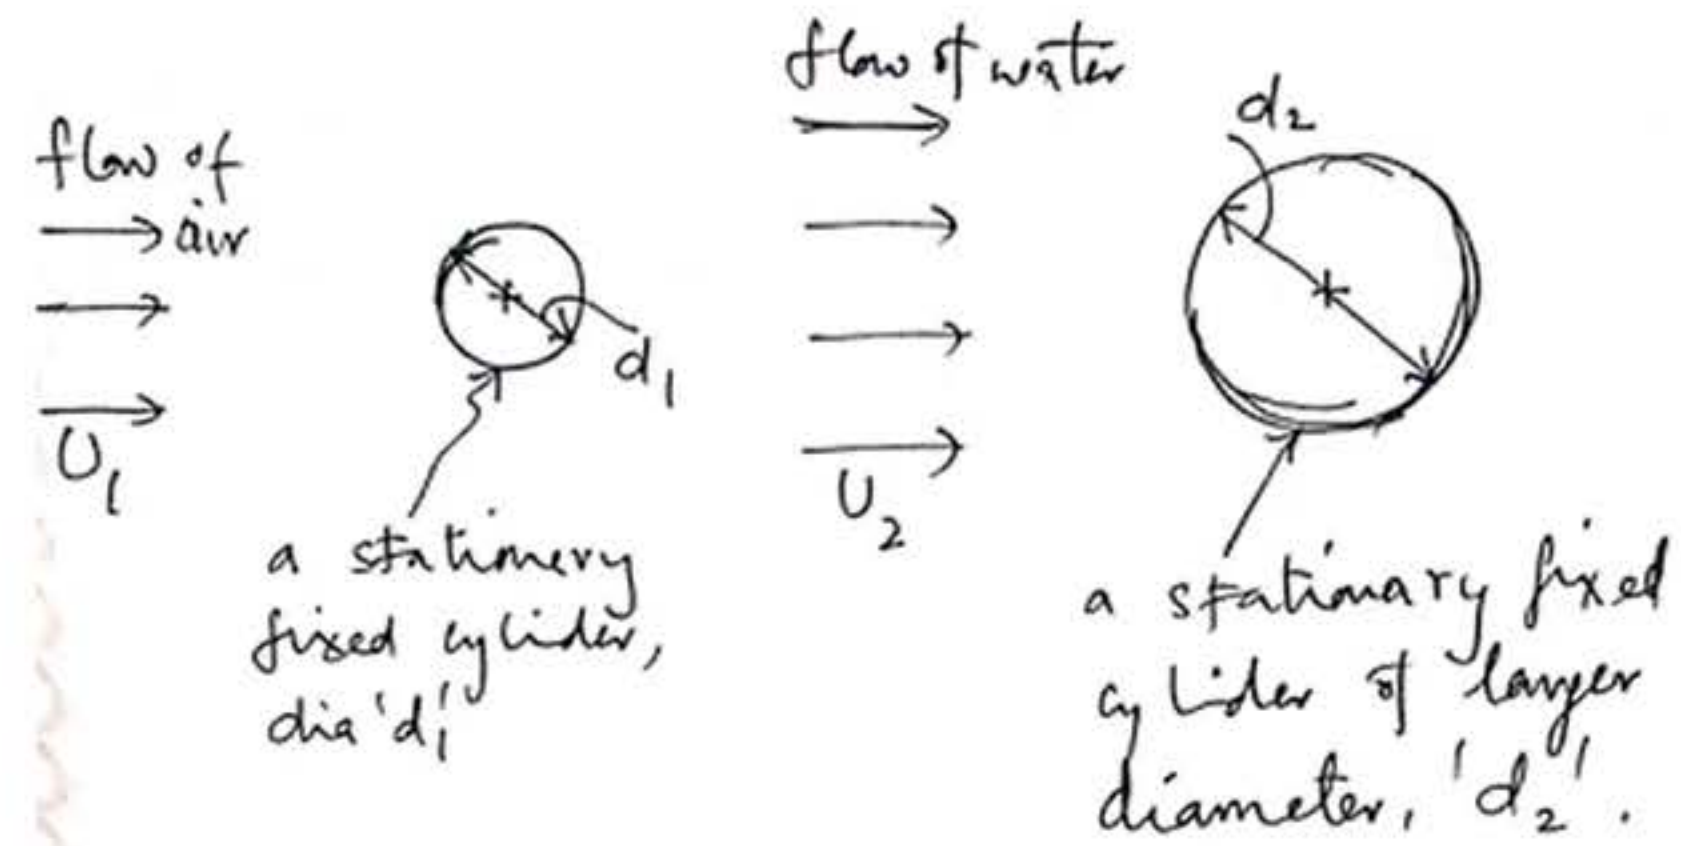 flow of
air
U1
d1
a stationery
fixed cylider,
dia 'd1'
flow of water
d2
U2
a stationary fixed
cylider of larger
diameter, 'd2'.